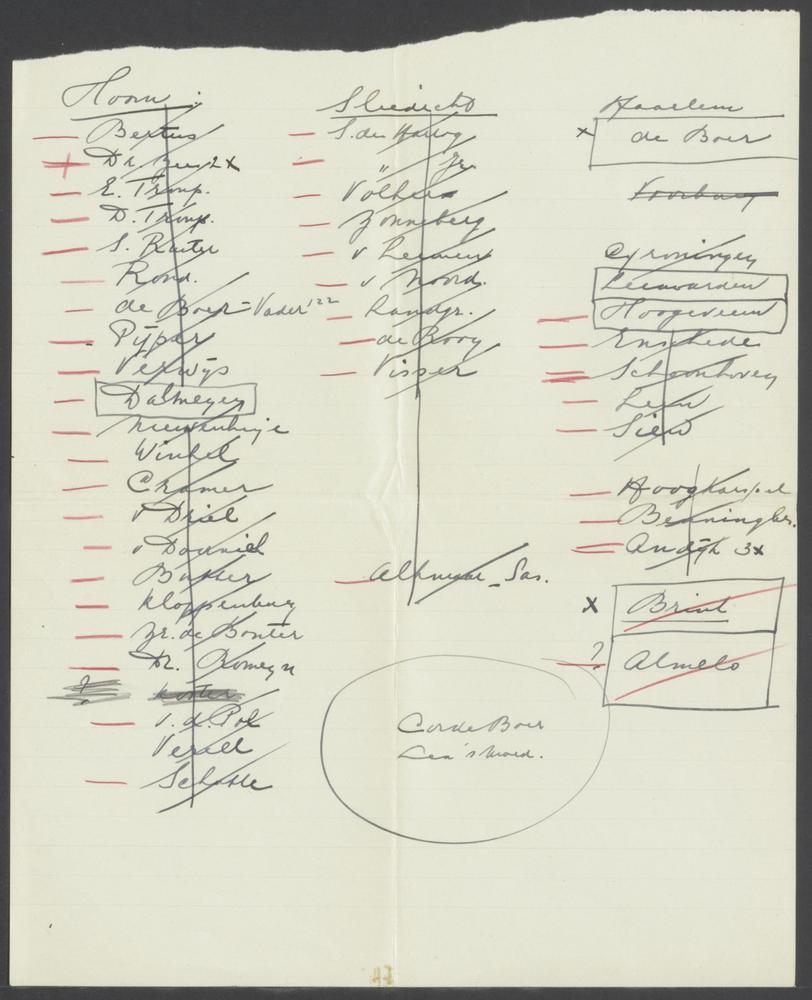 Hoorn:
Bertus
Dr. 2x
E. Tromp.
D. Tromp.
S. Ruiter
Rond.
de Boer = Vader
Pijper
Verwijs
Dalmeyer
Winkel
Cramer
v Driel
v Doornick
Bakker
Kloppenburg
Zr. de Bonter
Dr. Romeyn
?
Koster
v. d. Pol
Verell
Scholte
Sliedrecht
S. den Hartog
" Jr.
Volker
Zonneberg
v Leeuwen
v Noord.
Landgr.
de Rooy
Visser
Alkmaar - Sas.
Cor de Boer
Haarlem
x de Boer
Voorburg
Groningen
Leeuwarden
Hoogeveen
Enschede
Schoonhoven
Hoogkarspel
Benningbr.
Andijk 3x
x Brint
? Almelo